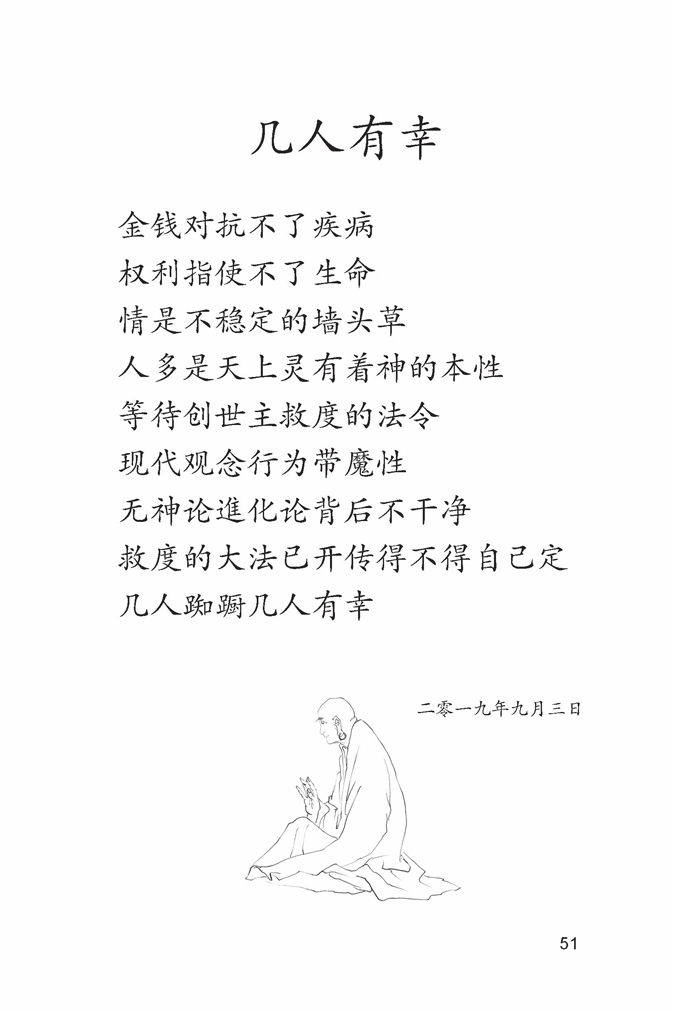 几人有幸
金钱对抗不了疾病
权利指使不了生命
情是不稳定的墙头草
人多是天上灵有着神的本性
等待创世主救度的法令
现代观念行为带魔性
无神论進化论背后不干净
救度的大法已开传得不得自己定
几人踟蹰几人有幸
二零一九年九月三日
51